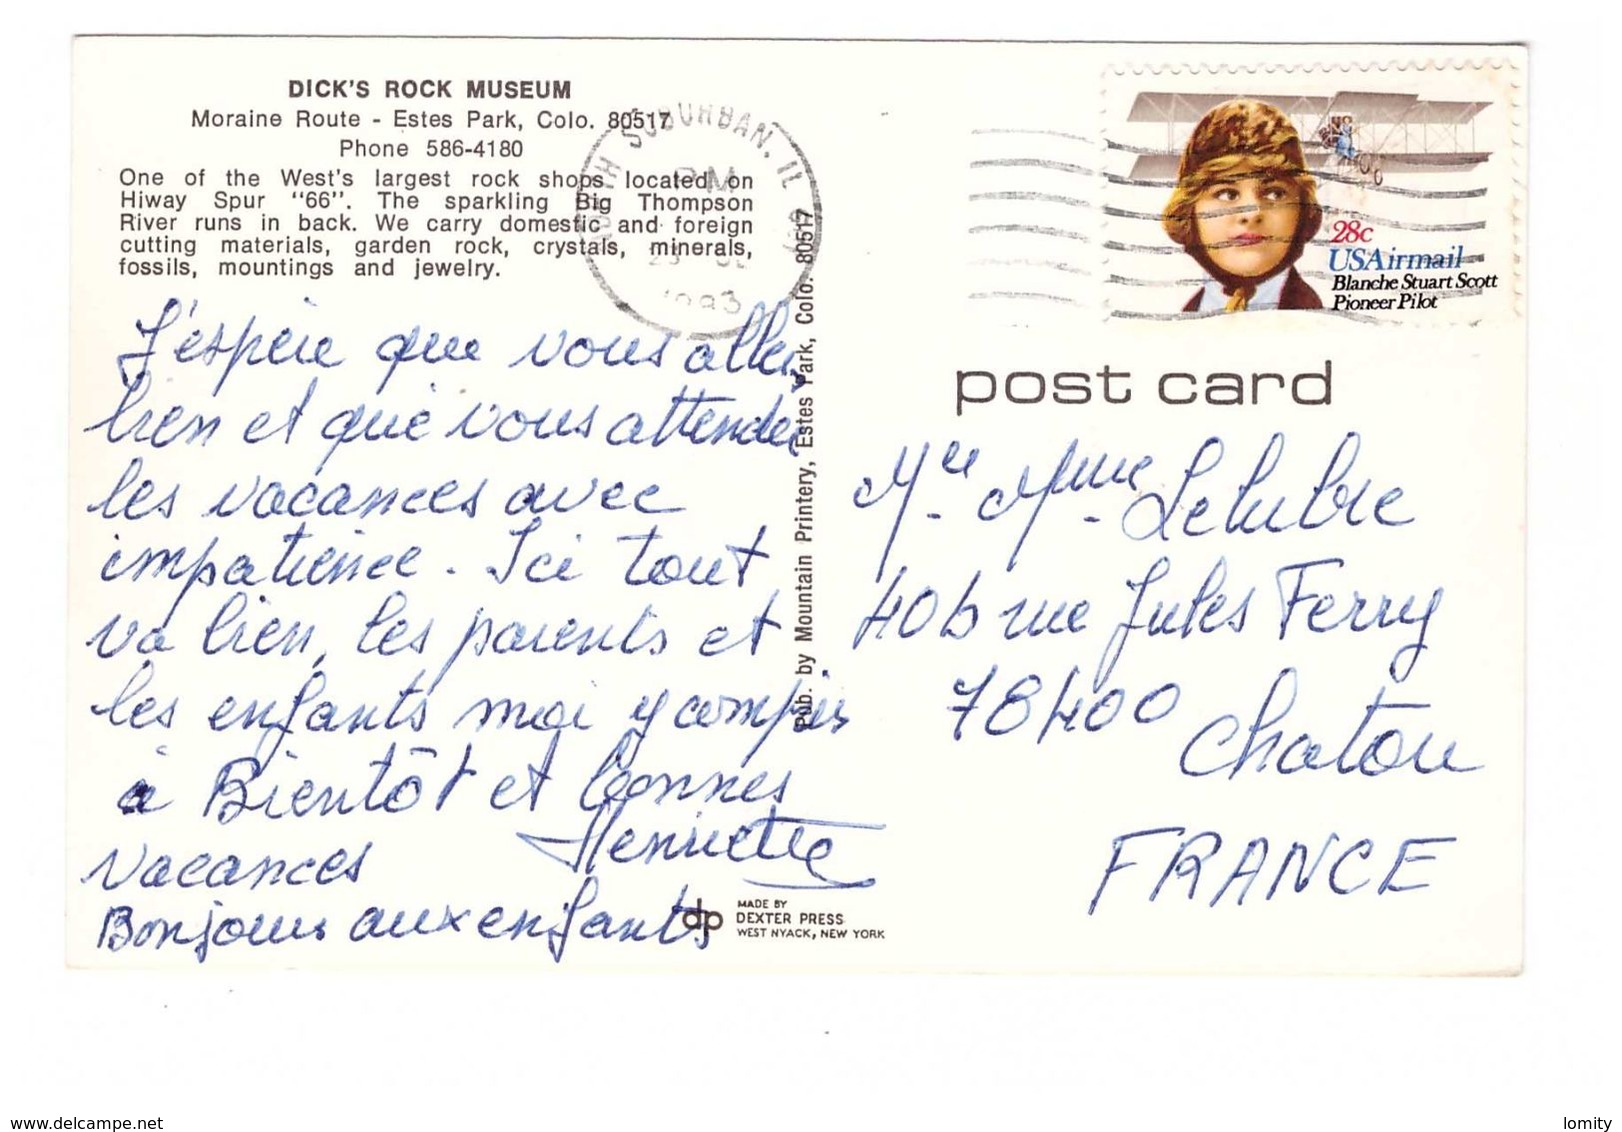 DICK'S ROCK MUSEUM
Moraine Route - Estes Park, Colo. 80517
Phone 586-4180
One of the West's largest rock shops located on
Hiway Spur "66". The sparkling Big Thompson
River runs in back. We carry domestic and foreign
cutting materials, garden rock, crystals, minerals,
fossils, mountings and jewelry.
J'espère que vous allez
bien et que vous attendez
les vacances avec
impatience. Ici tout
va bien, les parents et
les enfants moi y compris
à Bientôt et bonnes
vacances
Henriette
Bonjour aux enfants
Pub. by Mountain Printery, Estes Park, Colo. 80517
MADE BY
dp DEXTER PRESS
WEST NYACK, NEW YORK
NORTH SUBURBAN, IL
PM
1983
28c
USAirmail
Blanche Stuart Scott
Pioneer Pilot
post card
Mme Lelubre
40b rue Jules Ferry
78400
Chatou
FRANCE
www.delcampe.net
lomity